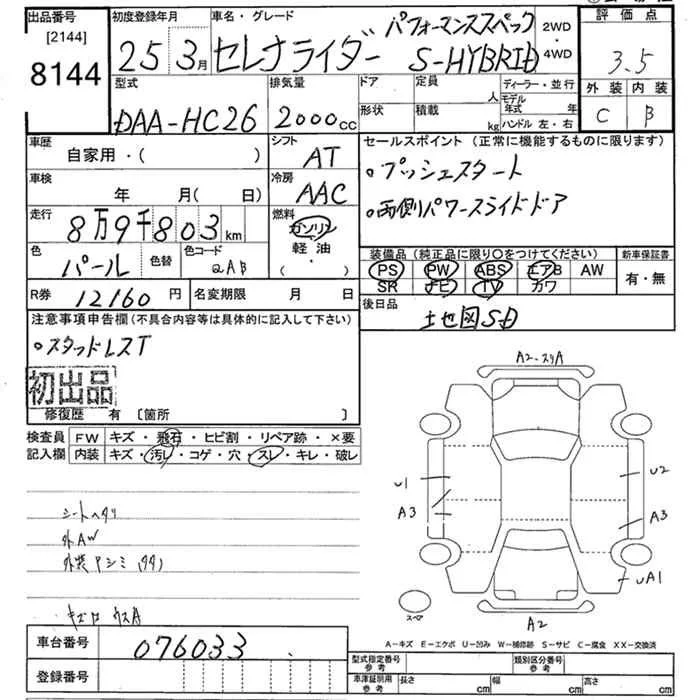 出品番号 初度登録年月 車名・グレード 評価点
[2144]
8144
25 3月 セレナライダー パフォーマンススペック S-HYBRID 2WD・4WD 3.5
外装 内装
C B
型式 排気量 ドア 定員 人 ディーラー・並行
形状 積載 kg モデル年式 年
ハンドル 左・右
DAA-HC26 2000cc
車歴 自家用・( ) シフト AT セールスポイント (正常に機能するものに限ります)
・プッシュスタート
・両側パワースライドドア
車検 年 月(日) 冷房 AAC
走行 8万9千803km 燃料 ガソリン・軽油・( )
色 パール 色替 色コード QAB
装備品 (純正品に限り○をつけてください) 新車保証書
PS PW ABS エアB AW 有・無
SR ナビ TV カワ
R券 12160円 名変期限 月 日
後日品
土地図SD
注意事項申告欄 (不具合内容等は具体的に記入して下さい)
・スタッドレスT
初出品
修復歴 有 [箇所 ]
検査員記入欄 FW キズ・飛石・ヒビ割・リペア跡・×要
内装 キズ・汚レ・コゲ・穴・スレ・キレ・破レ
シートヘタリ
外AW
A2-スリA
U1
A3
U2
A3
UA1
A2
スペア
A-キズ E-エクボ U-凹み W-補修跡 S-サビ C-腐食 XX-交換済
車台番号 076033
登録番号
型式指定番号 参考 類別区分番号 参考
車庫証明用 参考 長さ cm 幅 cm 高さ cm